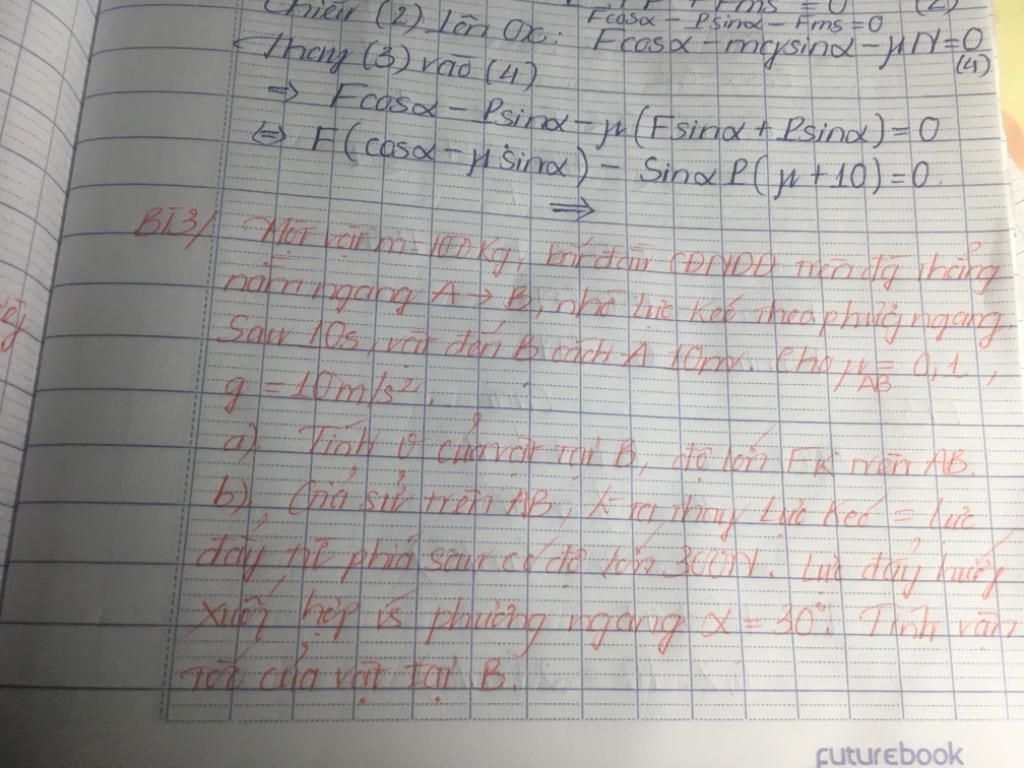 Chiếu (2) lên Ox: Fcosα - Psinα - Fms = 0
Fcosα - mgsinα - μN = 0
(4)
Thay (3) vào (4)
⇒ Fcosα - Psinα - μ(Fsinα + Psinα) = 0
⇔ F(cosα - μsinα) - sinαP(μ + 10) = 0
⇒
BT3/ Một vật m = 100kg, bắt đầu CĐNDĐ trên đg thẳng
nằm ngang A → B, nhờ lực kéo theo phương ngang
Sau 10s, vật đến B cách A 10m. Cho μ = 0,1,
AB
g = 10m/s².
a) Tính v của vật tại B, độ lớn FK trên AB.
b) Giả sử trên AB, k ta thay lực kéo = lực
đẩy từ phía sau có độ lớn 300N. Lực đẩy hướng
xuống hợp vs phương ngang α = 30°. Tính vận
tốc của vật tại B.
futurebook